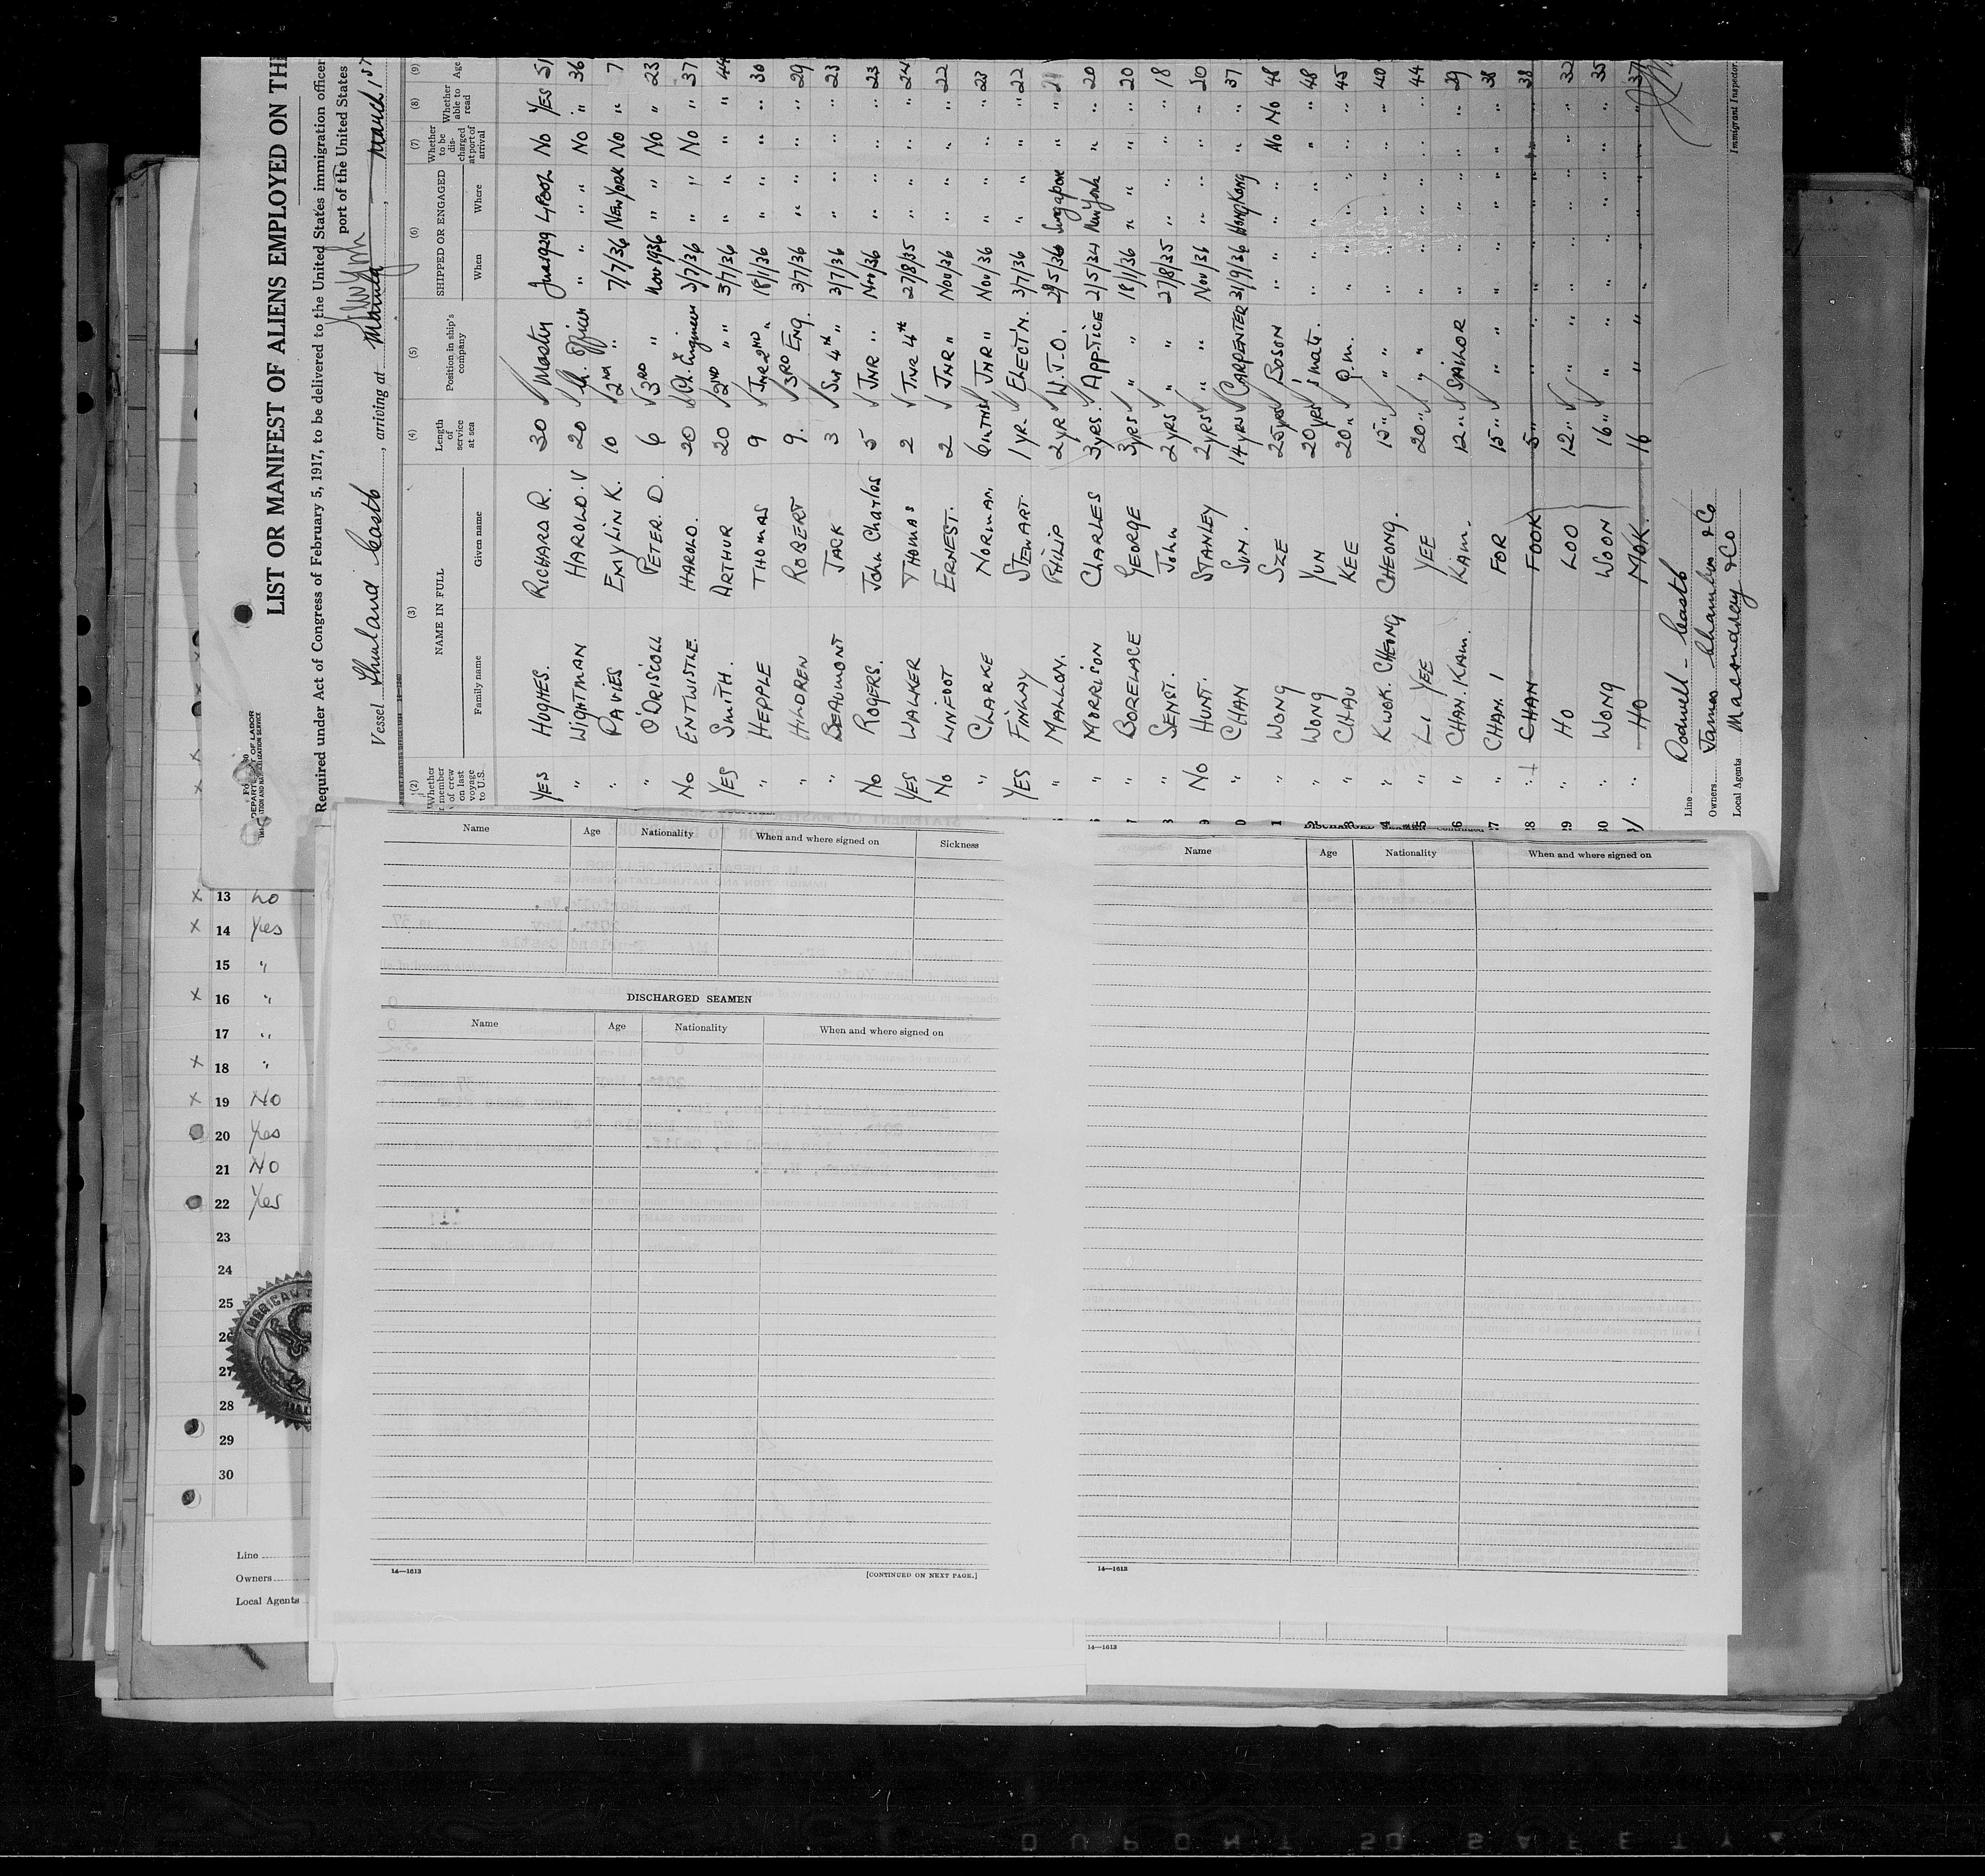 LIST OR MANIFEST OF ALIENS EMPLOYED ON THE
Required under Act of Congress of February 5, 1917, to be delivered to the United States immigration officer
port of the United States
DEPARTMENT OF LABOR
Vessel Castle, arriving at Manila, March 1st
(2) (3) (4) (5) (6) (7) (8) (9)
Whether member of crew on last voyage to U.S. NAME IN FULL Family name Given name Length of service at sea Position in ship's company SHIPPED OR ENGAGED When Where Whether to be discharged at port of arrival Whether able to read Age
YES HUGHES. RICHARD R. 30 Master Jan 1929 L'POOL NO YES 51
" WIGHTMAN HAROLD. V 20 Ch. Officer " " " NO " 36
" DAVIES EMLYN K. 10 2ND " 7/7/36 NEW YORK NO " 7
" O'DRISCOLL PETER. D. 6 3RD " Nov 1936 " " NO " 23
NO ENTWISTLE. HAROLD. 20 Ch. Engineer 3/7/36 " " NO " 37
YES SMITH. ARTHUR 20 2ND " " 3/7/36 " " " " 44
" HEPPLE THOMAS 9 JNR 2ND " 18/1/36 " " " " 30
" HILDREN ROBERT 9. 3RD ENG. 3/7/36 " " " " 29
" BEAUMONT JACK 3 4th " 3/7/36 " " " " 23
NO ROGERS. John Charles 5 JNR " Nov/36 " " " " 23
YES WALKER THOMAS 2 JNR 4th 27/8/35 " " " " 24
NO LINFOOT ERNEST. 2 JNR " Nov/36 " " " " 22
" CLARKE NORMAN. 6 MTHS JNR " Nov/36 " " " " 23
YES FINLAY STEWART. 1 YR. ELECT'N. 3/7/36 " " " " 22
" MALLON. PHILIP 2 YR W.T.O. 29/5/36 Singapore " " 21
" MORRISON CHARLES 3 YRS. APP'TICE 2/5/34 New York " " 20
" BORELACE GEORGE 3 YRS " 18/1/36 " " " " 20
" SENST. John 2 YRS " 27/8/35 " " " 18
NO HUNT. STANLEY 2 YRS " Nov/36 " " " " 20
" CHAN SUN. 14 YRS CARPENTER 31/9/36 HONG KONG " " 37
" WONG SZE 25 YRS BOSON " " " NO NO 48
" WONG YUN 20 YRS 's mate. " " " " " 48
" CHAU KEE 20 " Q.M. " " " " " 45
" KWOK. CHEONG CHEONG. 15 " " " " " " " 40
" LI YEE YEE 20 " " " " " " " 44
" CHAN. KAM. KAM. 12 " SAILOR " " " " " 29
" CHAN. 1 FOR 15 " " " " " " " 38
" CHAN FOOK 5 " " " " " " " 38
" HO LOO 12 " " " " " " " 32
" WONG WOON 16 " " " " " " " 35
" HO MOK. 16 " " " " " " 37
Line Dodwell - Castle
Owners James Chambers & Co
Local Agents Macondray & Co
Immigrant Inspector.
Name Age Nationality When and where signed on Sickness
DISCHARGED SEAMEN
Name Age Nationality When and where signed on
14—1613 [CONTINUED ON NEXT PAGE.]
DISCHARGED SEAMEN—Continued
Name Age Nationality When and where signed on
14—1613
14—1613
x 13 No
x 14 Yes
15 "
x 16 "
17 "
x 18 "
x 19 NO
20 Yes
21 NO
22 Yes
23
24
25
26
27
28
29
30
AMERICAN
Line
Owners
Local Agents
DUPONT SO SAFETY